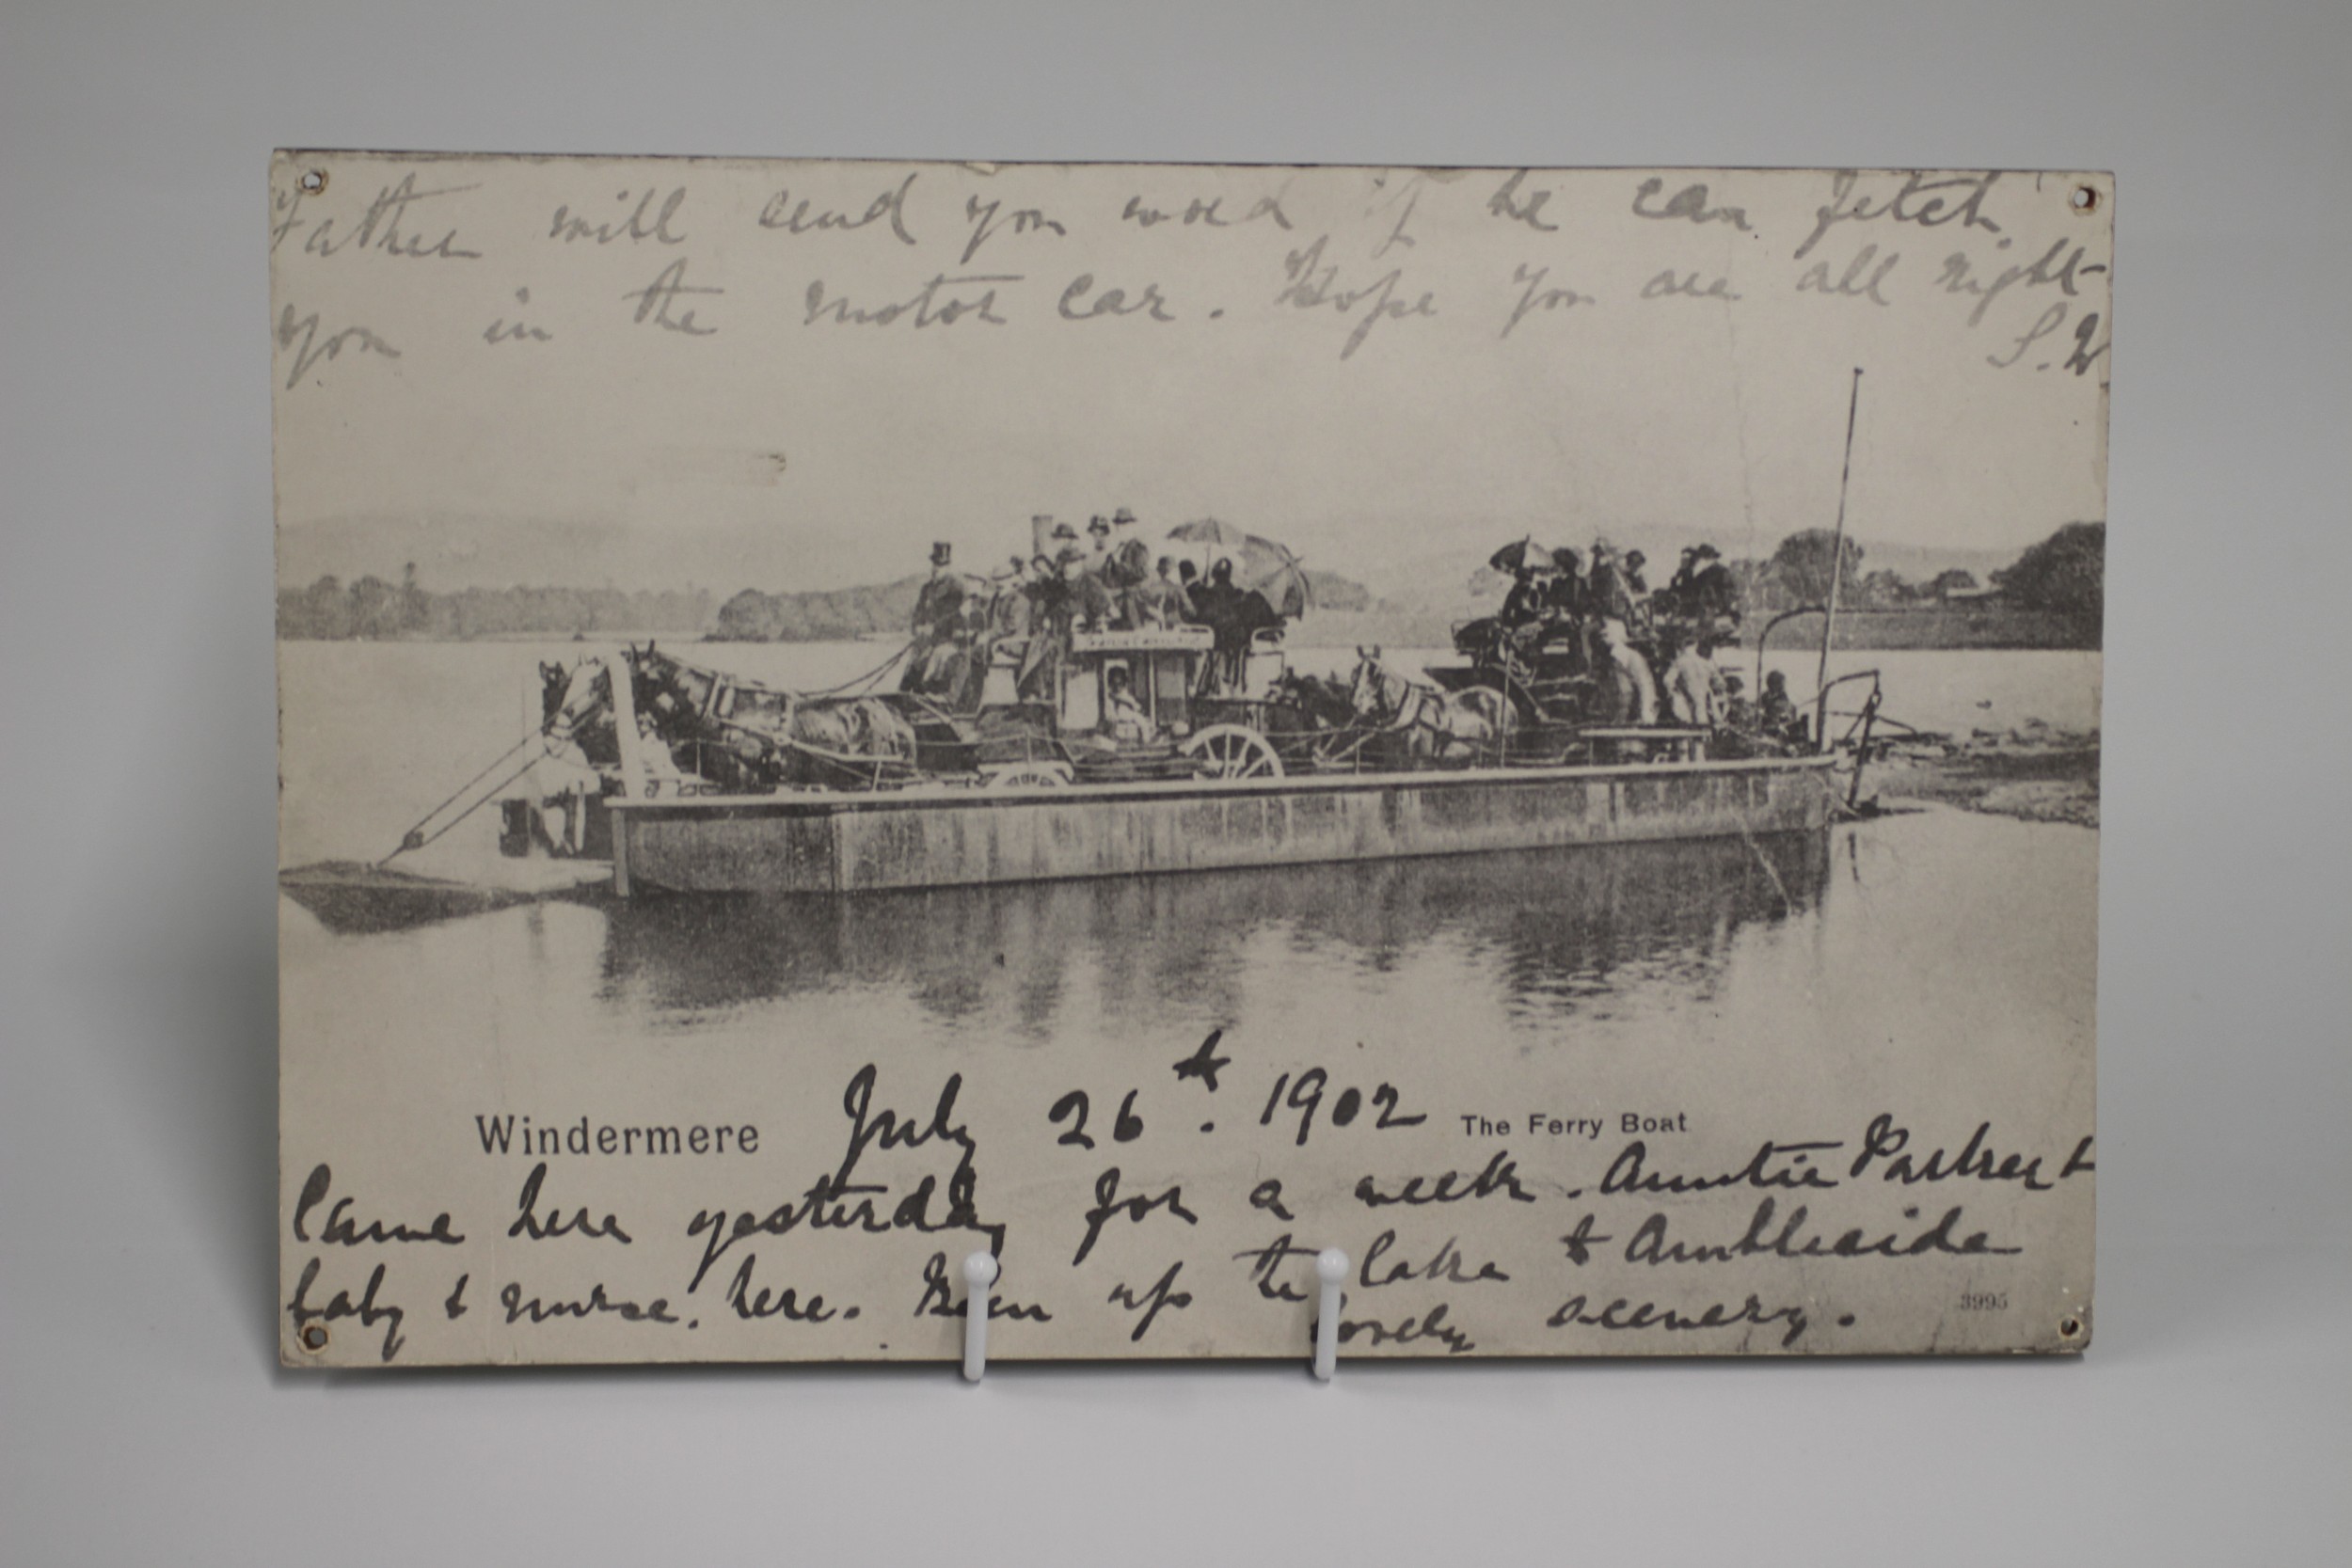 Father will send you word if he can fetch
you in the motor car. Hope you are all right
S. W.
July 26th. 1902
Windermere
The Ferry Boat
Came here yesterday for a week. Auntie Parker &
baby & nurse. here. Been up the lake to Ambleside
lovely scenery.
3995